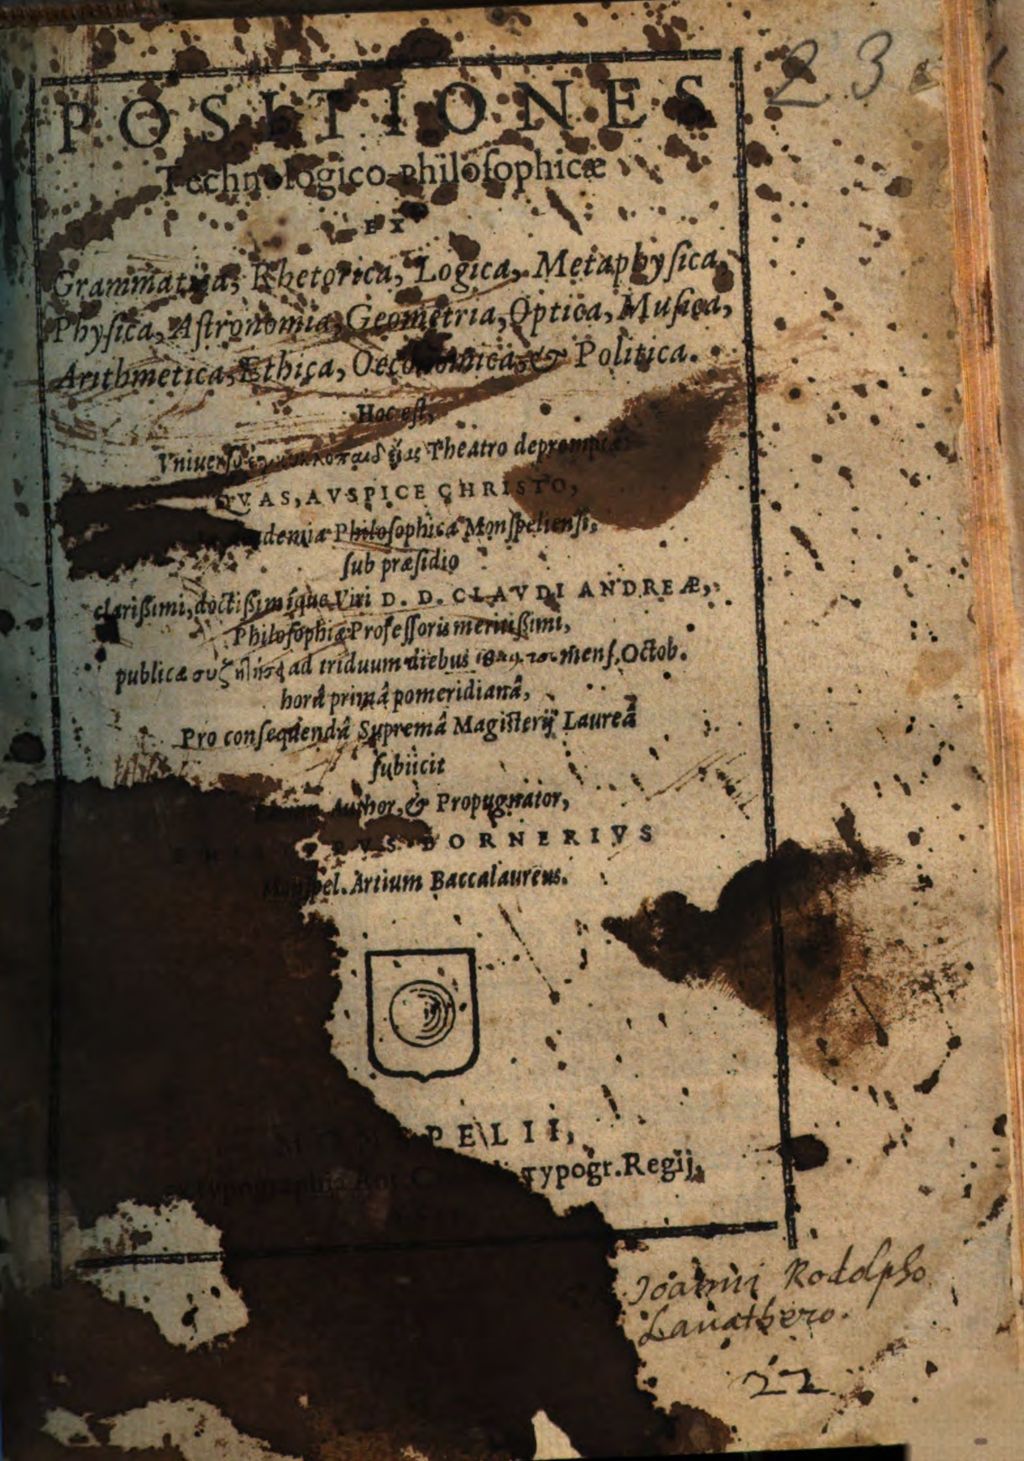 23
POSITIONES
Technologico-philoſophicæ
EX
Grammatica, Rhetorica, Logica, Metaphyſica,
Phyſica, Aſtronomia, Geometria, Optica, Muſica,
Arithmetica, Ethica, Oeconomica, & Politica.
Hoc eſt,
Theatro depromptæ
QVAS, AVSPICE CHRISTO,
Academia Philoſophica Monſpelienſi,
ſub præſidio
clariſſimi, doctiſſimique Viri D. D. CLAVDI ANDREÆ,
Philoſophiæ Profeſſoris meritiſſimi,
publicæ ad triduum diebus menſ. Octob.
horâ primâ pomeridianâ,
Pro conſequendâ Supremâ Magiſterij Laureâ
ſubiicit
Author, & Propugnator,
DORNERIVS
Monſpel. Artium Baccalaureus.
MONSPELII,
Typogr. Regij,
Joanni Rodolpho
Lauathero.
22